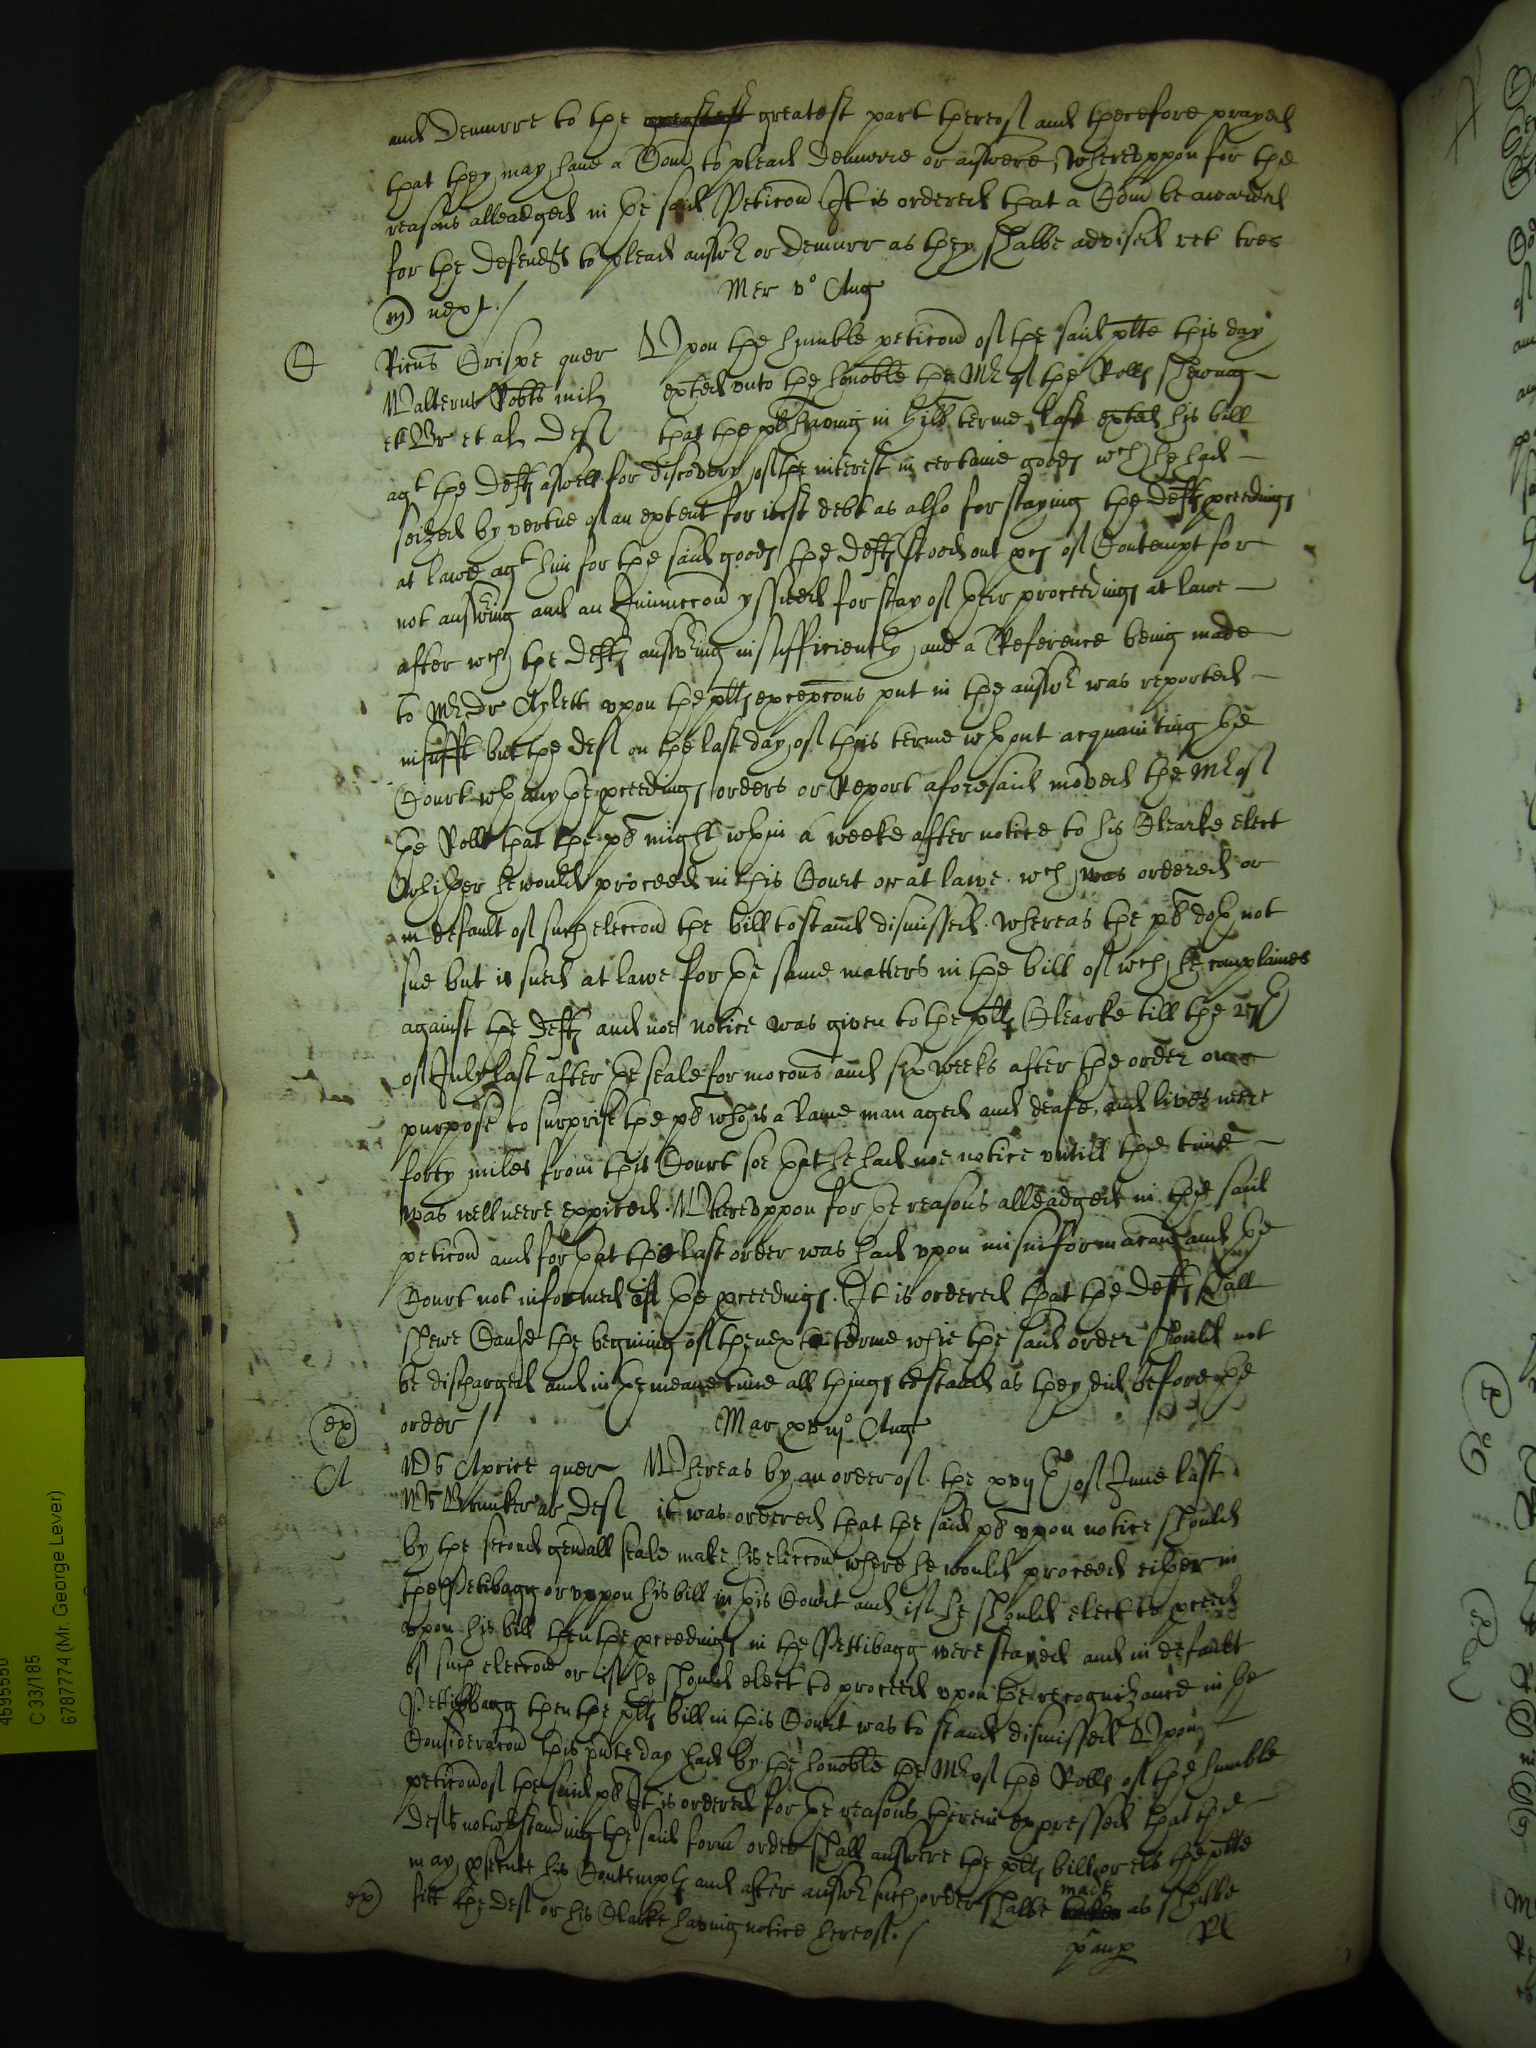 and Demurre to the greatest part thereof and therefore prayed
that they may have a Com to plead demurre or answere, Whereuppon for the
reasons alleadged in þe said Peticon It is ordered that a Com be awarded
for the Defendts to plead answer or demurr as they shalbe advised ret tres
next. /
Mer vo Aug
C
Ricus Crispe quer Upon the humble peticon of the said plte this day
Walterus Robts mil exhted unto the honoble the Mr of the Rolls shewing
et Br et al Def that the pl having in Hill terme last exhted his bill
agt the Defts aswell for discovery of the interest in certaine goods wch he had
seized by vertue of an extent for just debt as also for staying the Defts pceedings
at lawe agt him for the said goods the Defts stood out pces of Contempt for
not answering and an Injunccon yssued for stay of their proceedings at lawe
after wch the Defts answering insufficiently and a Reference being made
to Mr Dr Aylett upon the plts excepcons put in the answer was reported
insufft but the Def on the last day of this terme wthout acquainting þe
Court wth any þe pceedings orders or Report aforesaid moved the Mr of
þe Rolls that the pl might wthin a weeke after notice to his Clearke elect
Whither he would proceed in this Court or at lawe wch was ordered or
in default of such eleccon the bill to stand dismissed. Whereas the pl doth not
sue but is sued at lawe for þe same matters in the bill of wch he complaines
against the Defts and noe notice was given to the plts Clearke till the
of July last after þe seale for mocons and six weeks after the order
purpose to surprise the pl who is a lame man aged and deafe, and lives neere
forty miles from this Court soe that he had noe notice untill the time
was wellneere expired. Whereuppon for þe reasons alleadged in the said
peticon and for that the last order was had upon misinformacon and þe
Court not informed of þe pceedings. It is ordered that the Defts shall
shewe Cause the begining of the next terme whie the said order should not
be discharged and in þe meane time all things to stand as they did before the
ex
order /
Mar xviijo Aug
A
Ws Aprice quer Whereas by an order of the xvij th of June last
Ws Brunker ar Def it was ordered that the said pl upon notice should
by the second genall seale make his eleccon where he would proceed either in
the Pettibagg or uppon his bill in this Court and if he should elect to pceed
upon his bill then the pceedings in the Pettibagg were stayed and in default
of such eleccon or if he should elect to proceed upon the recognizance in þe
Pettibagg then the plts bill in this Court was to stand dismissed Upon
Consideracon this pnte day had by the honoble the Mr of the Rolls of the humble
peticon of the said pl It is ordered for þe reasons therein expressed that the
Defts notwthstanding the said form order shall answere the plts bill or els the plte
may psecute his Contempts and after answer such order shalbe made as shalbe
ex
fitt the Def or his Clarke having notice hereof. /
4595550
C 33/185
6787774 (Mr. George Lever)